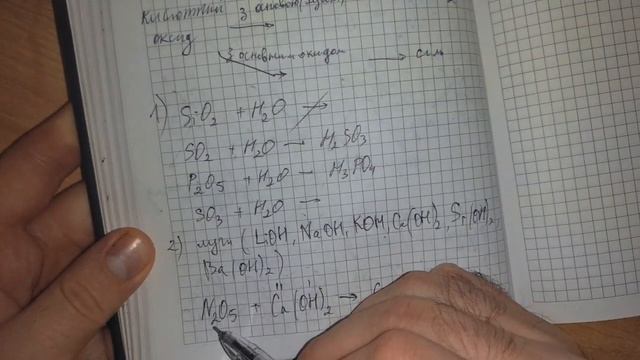 Кислотний з основою (луги)
оксид
з основним оксидом → сіль
1) SiO₂ + H₂O ↛
SO₂ + H₂O → H₂SO₃
P₂O₅ + H₂O → H₃PO₄
SO₃ + H₂O →
2) луги (LiOH, NaOH, KOH, Ca(OH)₂, Sr(OH)₂
Ba(OH)₂)
N₂O₅ + Ca(OH)₂ →